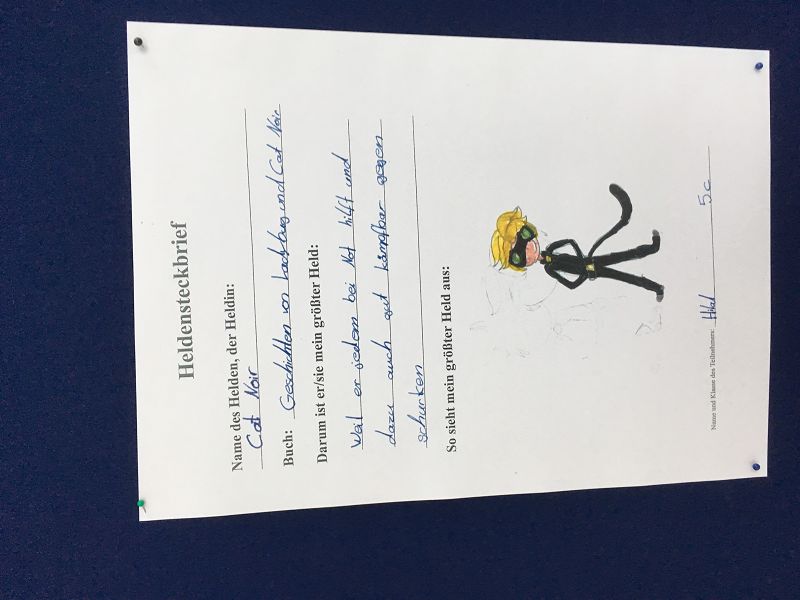 Heldensteckbrief
Name des Helden, der Heldin:
Cat Noir
Buch: Geschichten von Ladybug und Cat Noir
Darum ist er/sie mein größter Held:
Weil er jedem bei Not hilft und
dazu auch gut kämpfbar gegen
schurken
So sieht mein größter Held aus:
Name und Klasse des Teilnehmers: Hilal 5c